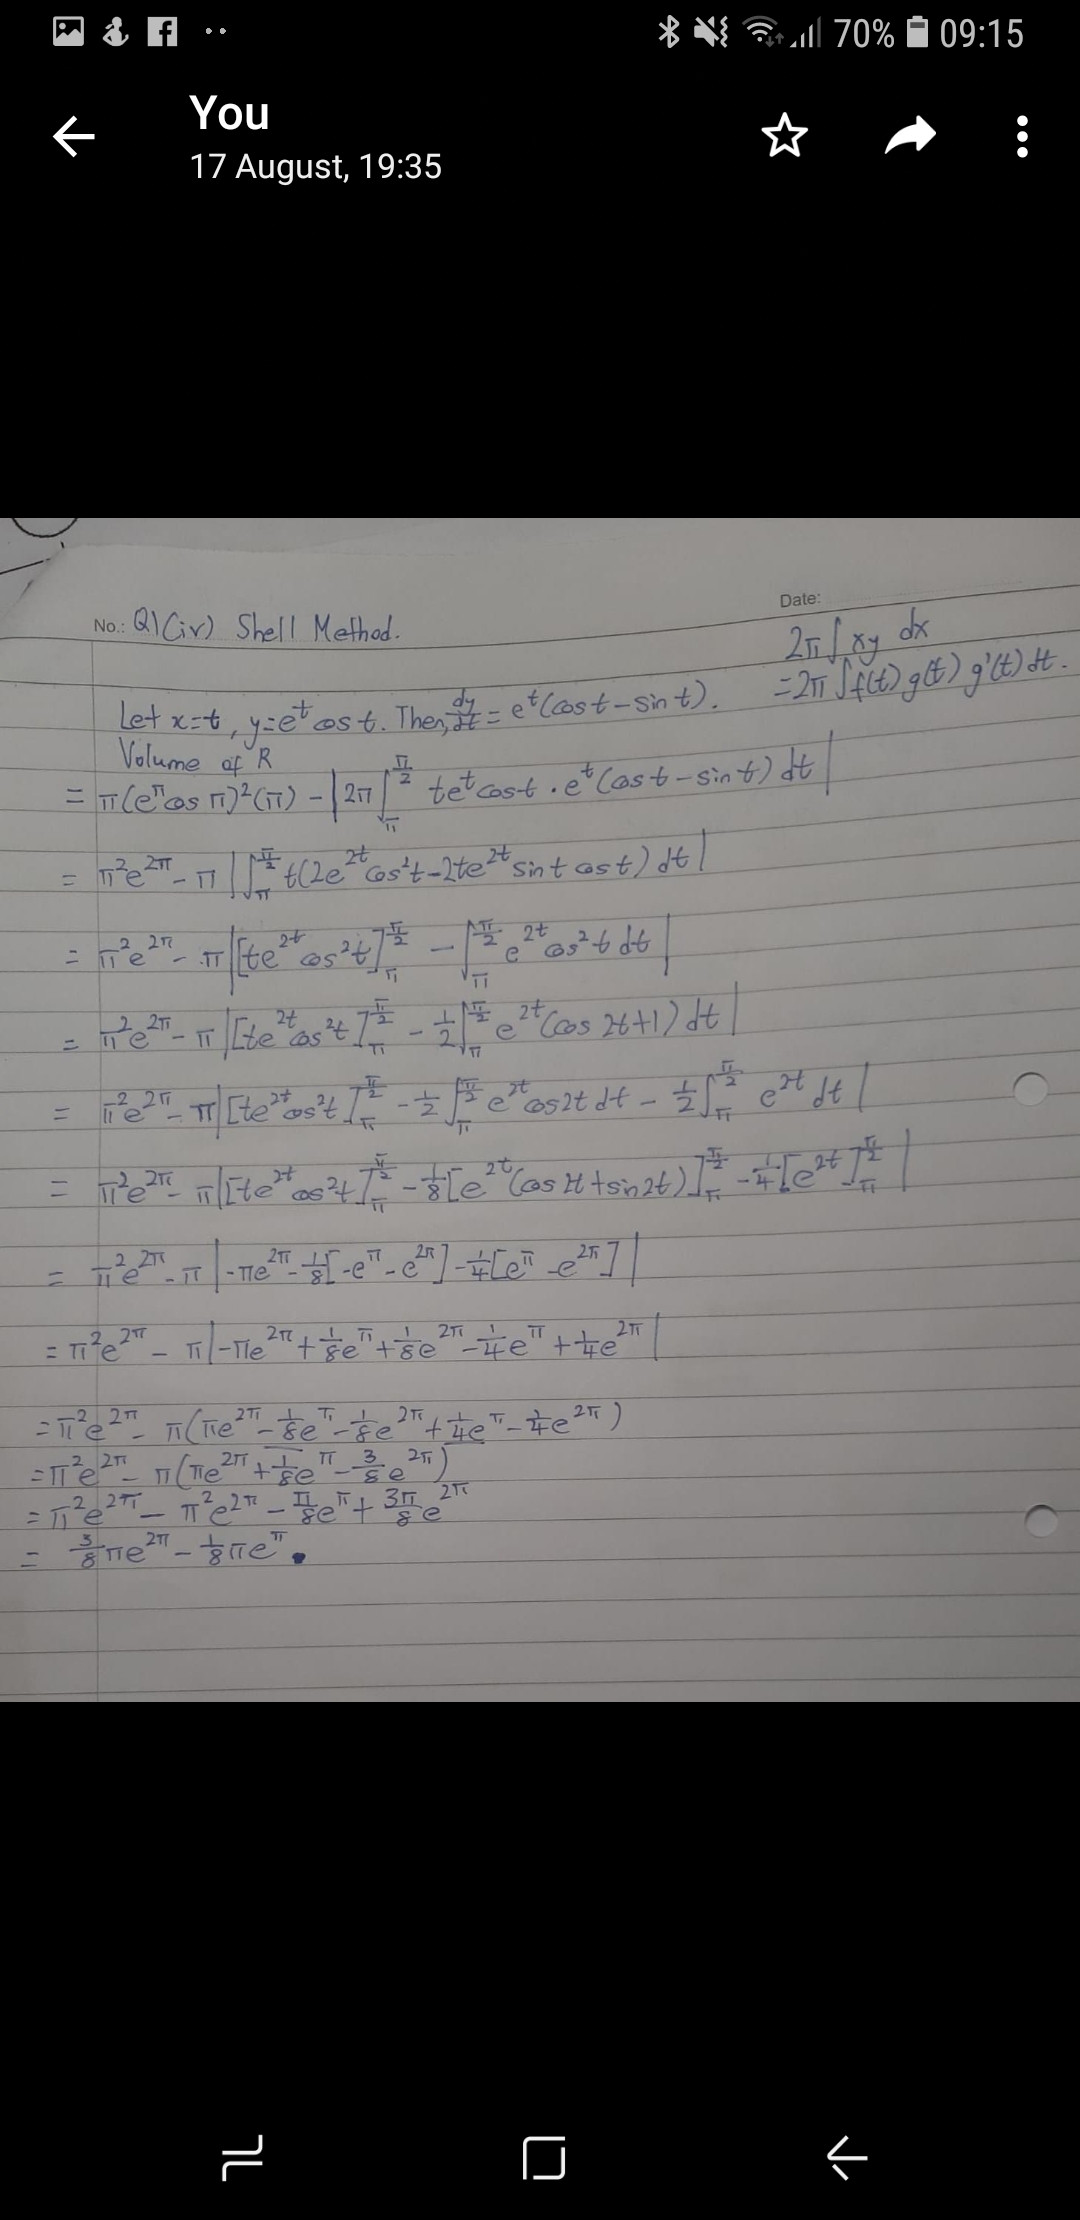 70% 09:15
You
17 August, 19:35
Date:
No.: Q1(iv) Shell Method.
2π∫xy dx
=2π∫f(t)g(t)g'(t)dt.
Let x=t, y=e^t cos t. Then, dy/dt = e^t(cos t - sin t).
Volume of R
= π(e^π cos π)²(π) - |2π∫_π^{π/2} te^t cos t · e^t(cos t - sin t) dt|
= π²e^{2π} - π|∫_π^{π/2} t(2e^{2t}cos²t - 2te^{2t} sin t cos t) dt|
= π²e^{2π} - π|[te^{2t} cos²t]_π^{π/2} - ∫_π^{π/2} e^{2t} cos²t dt|
= π²e^{2π} - π|[te^{2t} cos²t]_π^{π/2} - 1/2∫_π^{π/2} e^{2t}(cos 2t+1) dt|
= π²e^{2π} - π|[te^{2t} cos²t]_π^{π/2} - 1/2∫_π^{π/2} e^{2t} cos2t dt - 1/2∫_π^{π/2} e^{2t} dt|
= π²e^{2π} - π|[te^{2t} cos²t]_π^{π/2} - 1/8[e^{2t}(cos 2t + sin 2t)]_π^{π/2} - 1/4[e^{2t}]_π^{π/2}|
= π²e^{2π} - π|-πe^{2π} - 1/8[-e^π - e^{2π}] - 1/4[e^π - e^{2π}]|
= π²e^{2π} - π|-πe^{2π} + 1/8e^π + 1/8e^{2π} - 1/4e^π + 1/4e^{2π}|
= π²e^{2π} - π(πe^{2π} - 1/8e^π - 1/8e^{2π} + 1/4e^π - 1/4e^{2π})
= π²e^{2π} - π(πe^{2π} + 1/8e^π - 3/8e^{2π})
= π²e^{2π} - π²e^{2π} - π/8e^π + 3π/8e^{2π}
= 3/8πe^{2π} - 1/8πe^π.